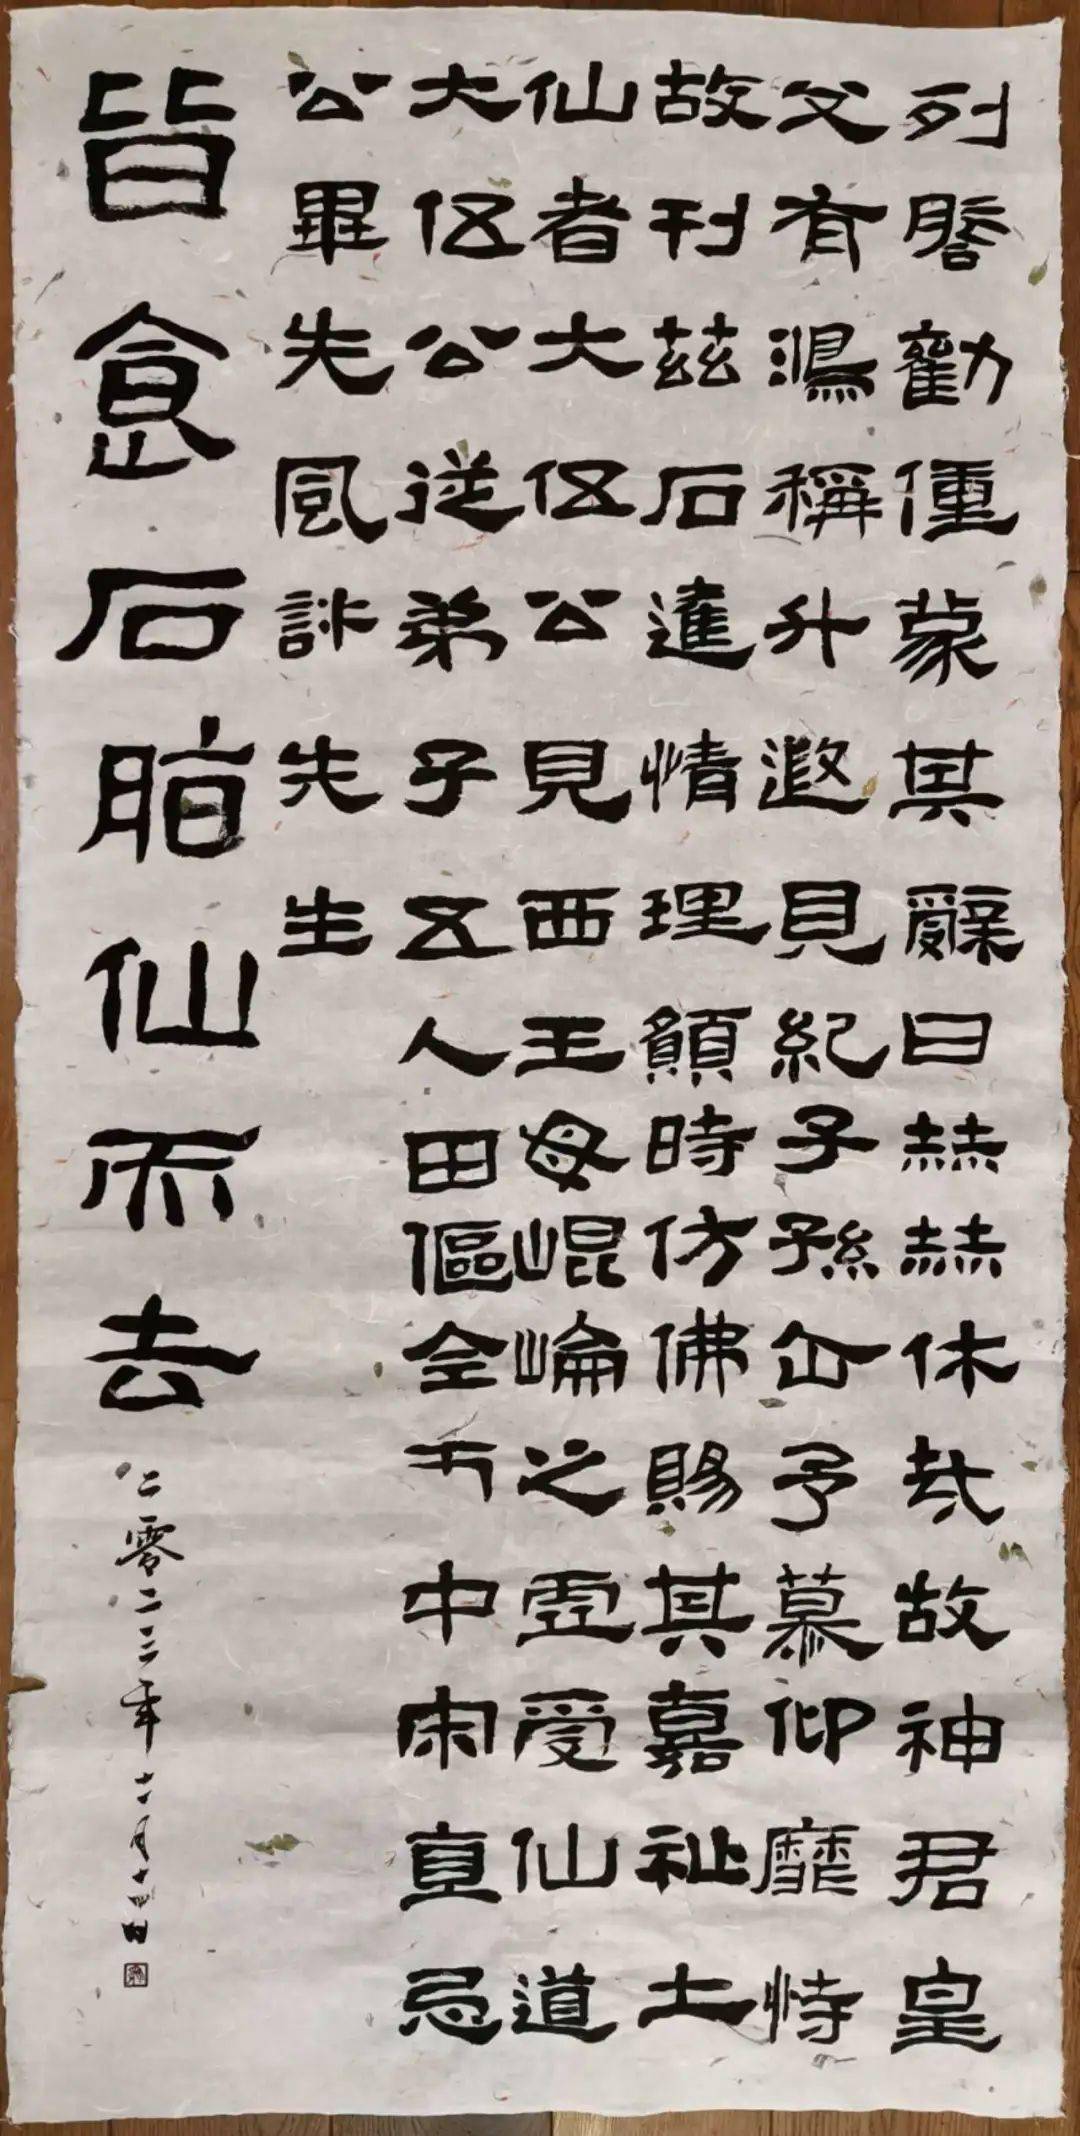 列謄勸僮蒙其辭曰赫赫休哉故神君皇
父有鴻稱升遐見紀子孫企予慕仰靡恃
故刊茲石達情理願時仿佛賜其嘉祉土
仙者大伍公見西王母崐崘之虛受仙道
大伍公從弟子五人田傴全中宋直忌
公畢先風許先生
皆食石脂仙而去
二零二二年十一月